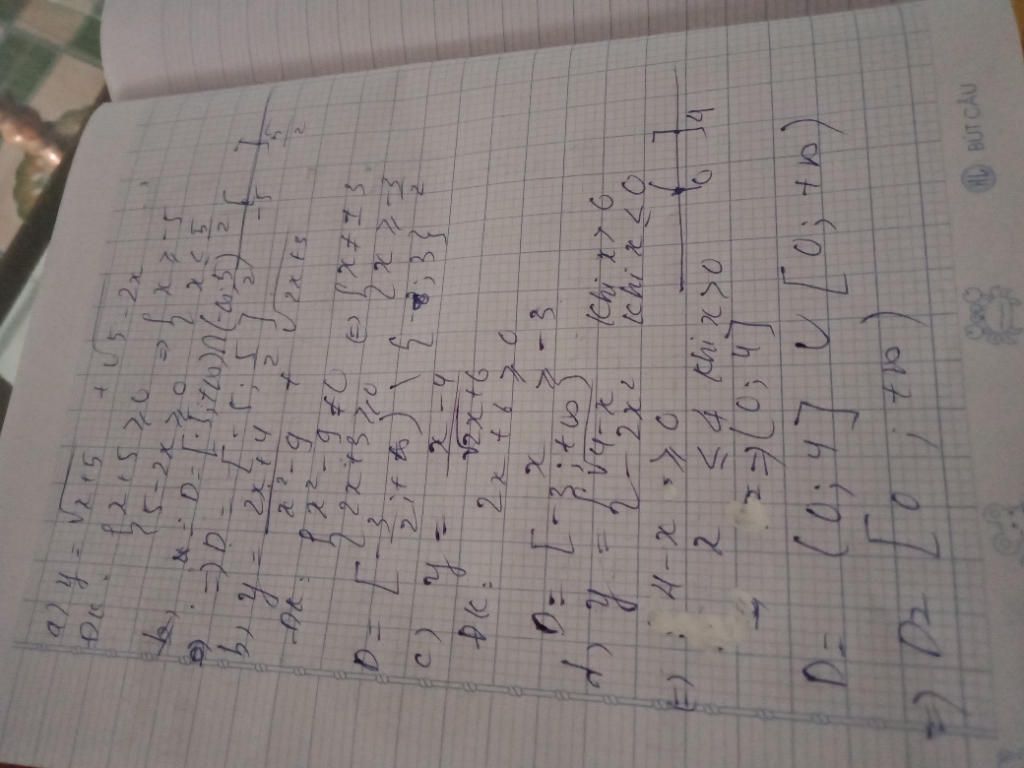 a) y = √x+5 + √5-2x
ĐK: { x+5 ≥ 0
{ 5-2x ≥ 0 => { x ≥ -5
{ x ≤ 5/2
D = [-5; +∞) ∩ (-∞; 5/2)
=> D = [-5; 5/2] -5 5/2
b) y = 2x+4 / x²-9 + √2x+3
ĐK: { x²-9 ≠ 0
{ 2x+3 ≥ 0 <=> { x ≠ ±3
{ x ≥ -3/2
D = [-3/2; +∞) \ { ; 3}
c) y = x-4 / √2x+6
ĐK: 2x+6 ≥ 0
x ≥ -3
D = [-3; +∞)
d) y = { √4-x khi x > 0
{ -2x² khi x ≤ 0
=> 4-x ≥ 0
x ≤ 4 khi x > 0 0 4
→ x => (0; 4]
D = (0; 4] ∪ [0; +∞)
=> D = [0; +∞)
BÚT CÂU